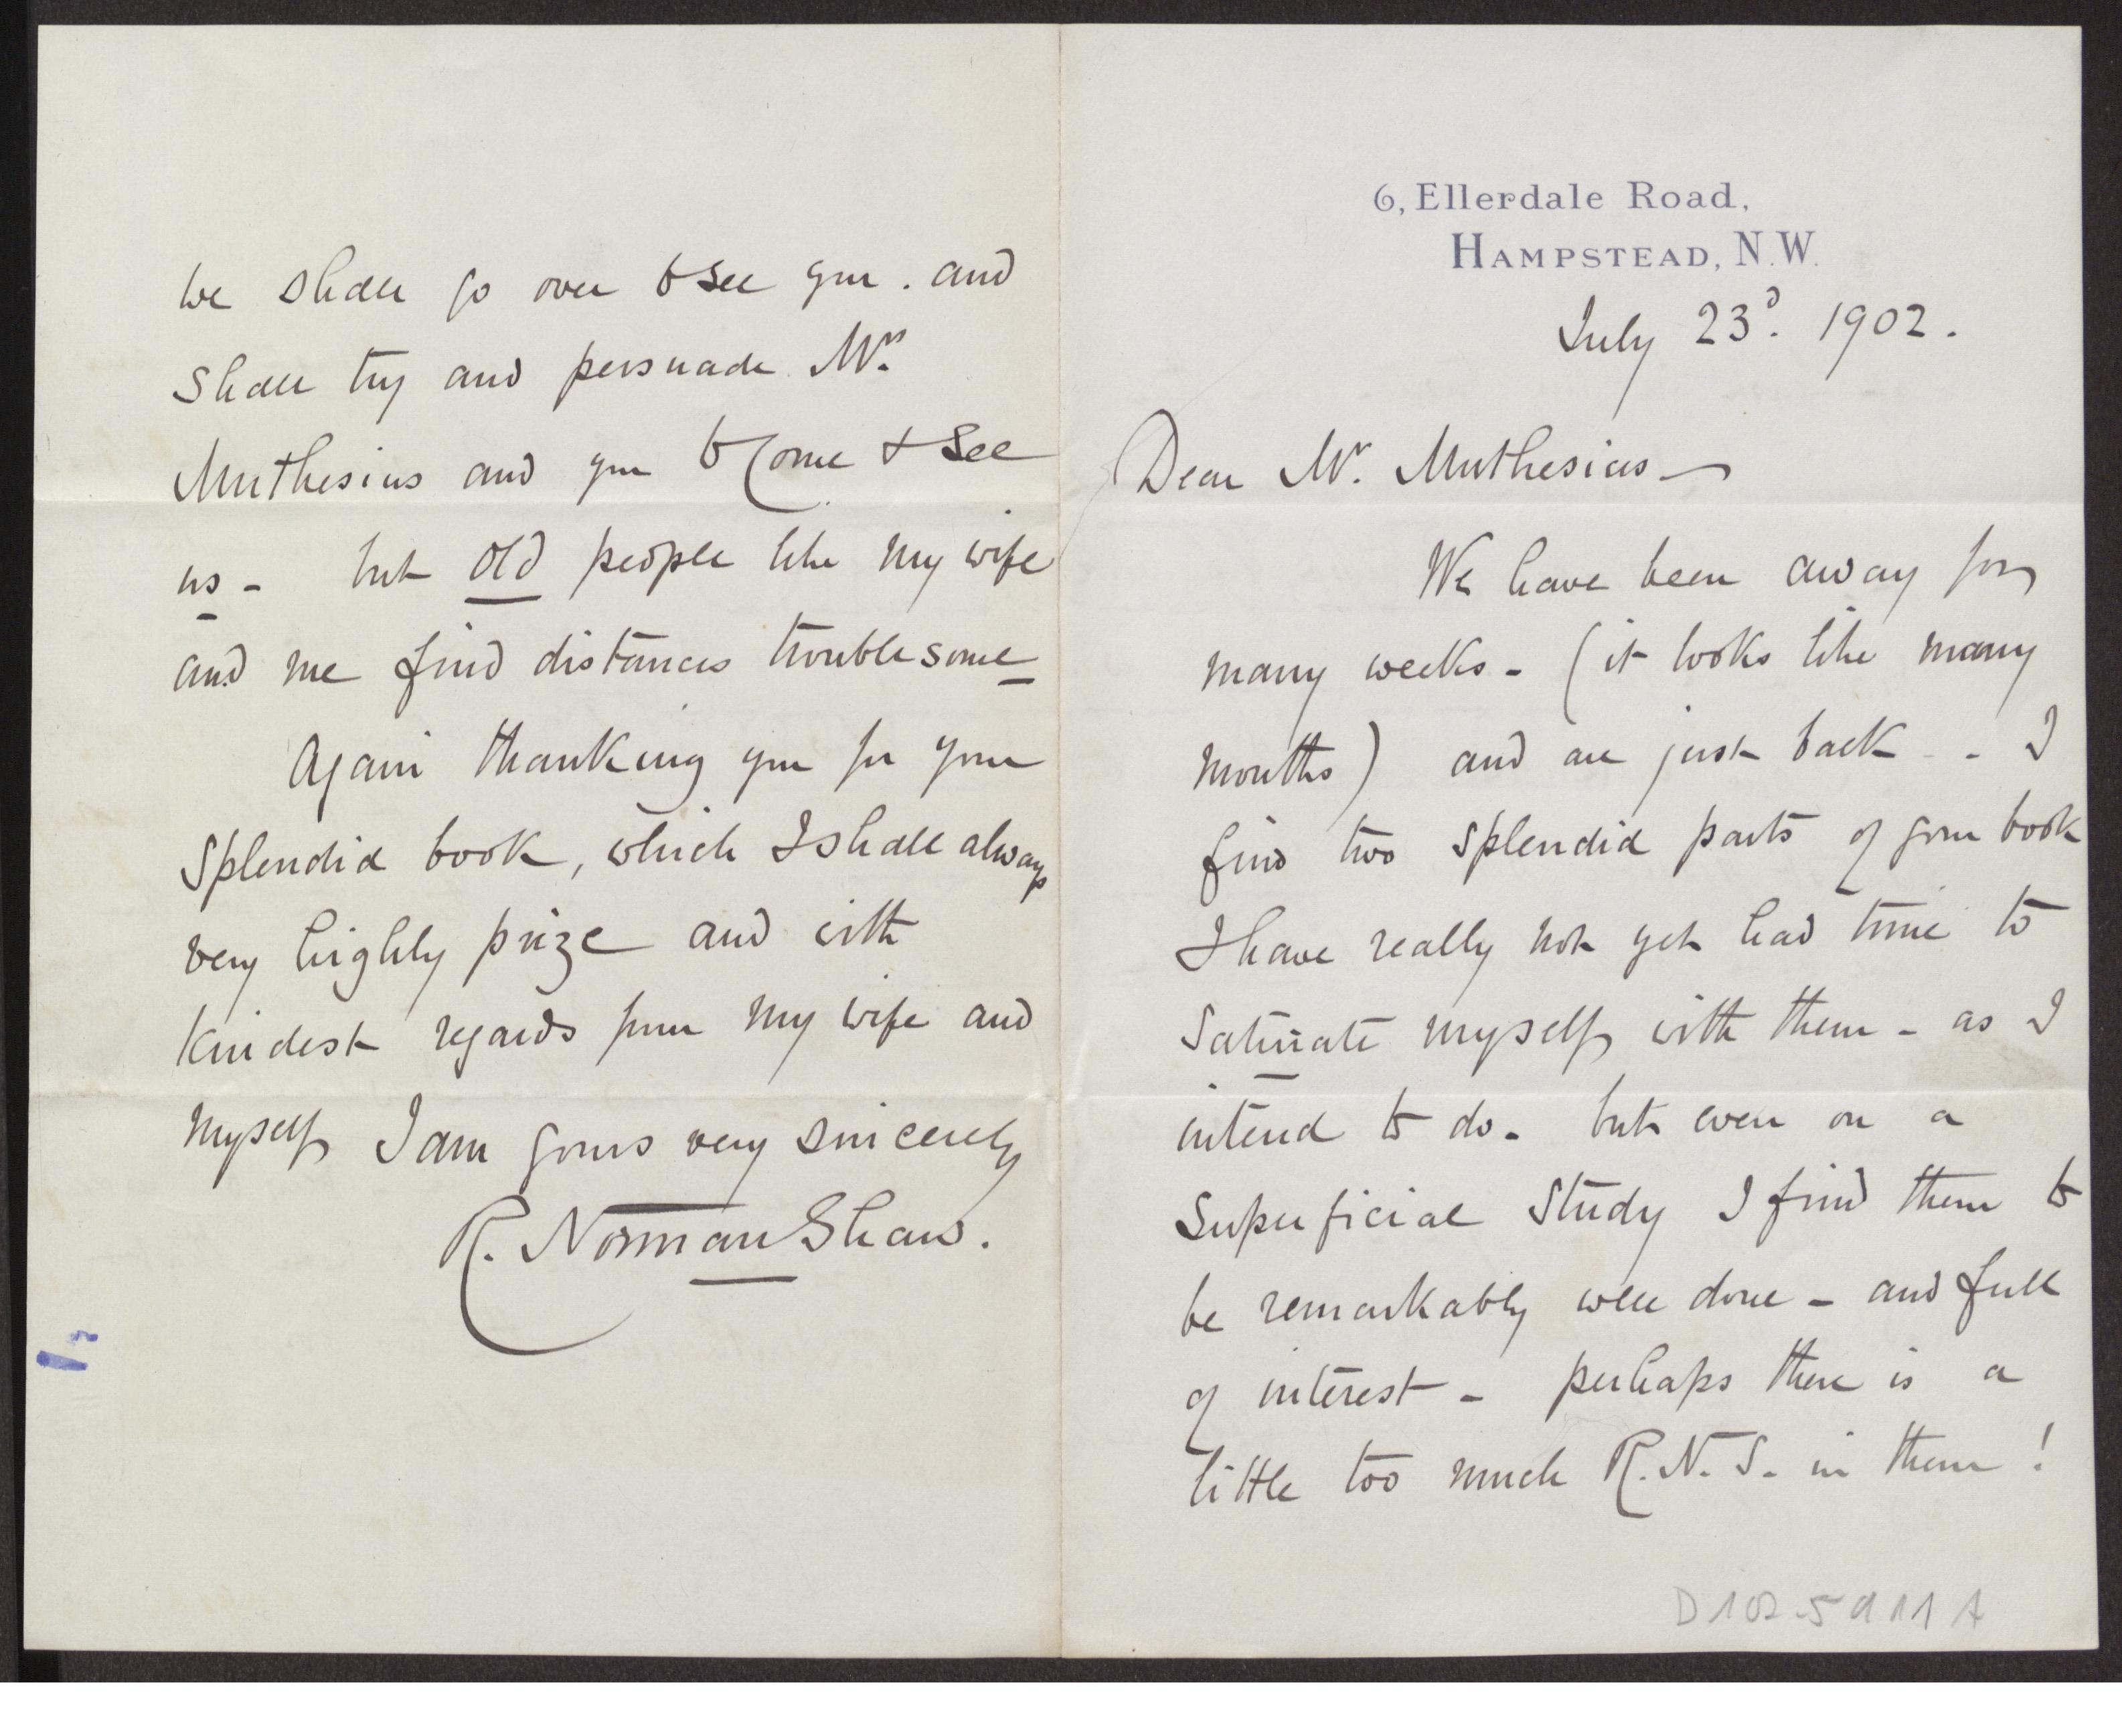 6, Ellerdale Road,
HAMPSTEAD, N.W.
July 23d. 1902.
Dear Mr. Muthesius—
We have been away for
many weeks - (it looks like many
months) and are just back - - I
find two splendid parts of your book
I have really not yet had time to
saturate myself with them - as I
intend to do. but even on a
superficial study I find them to
be remarkably well done - and full
of interest - perhaps there is a
little too much R. N. S. in them!
D102-5911A
we shall go over to see you. and
shall try and persuade Mrs.
Muthesius and you to come & see
us - but old people like my wife
and me find distances troublesome
Again thanking you for your
splendid book, which I shall always
very highly prize and with
kindest regards from my wife and
myself I am yours very sincerely
R. Norman Shaw.